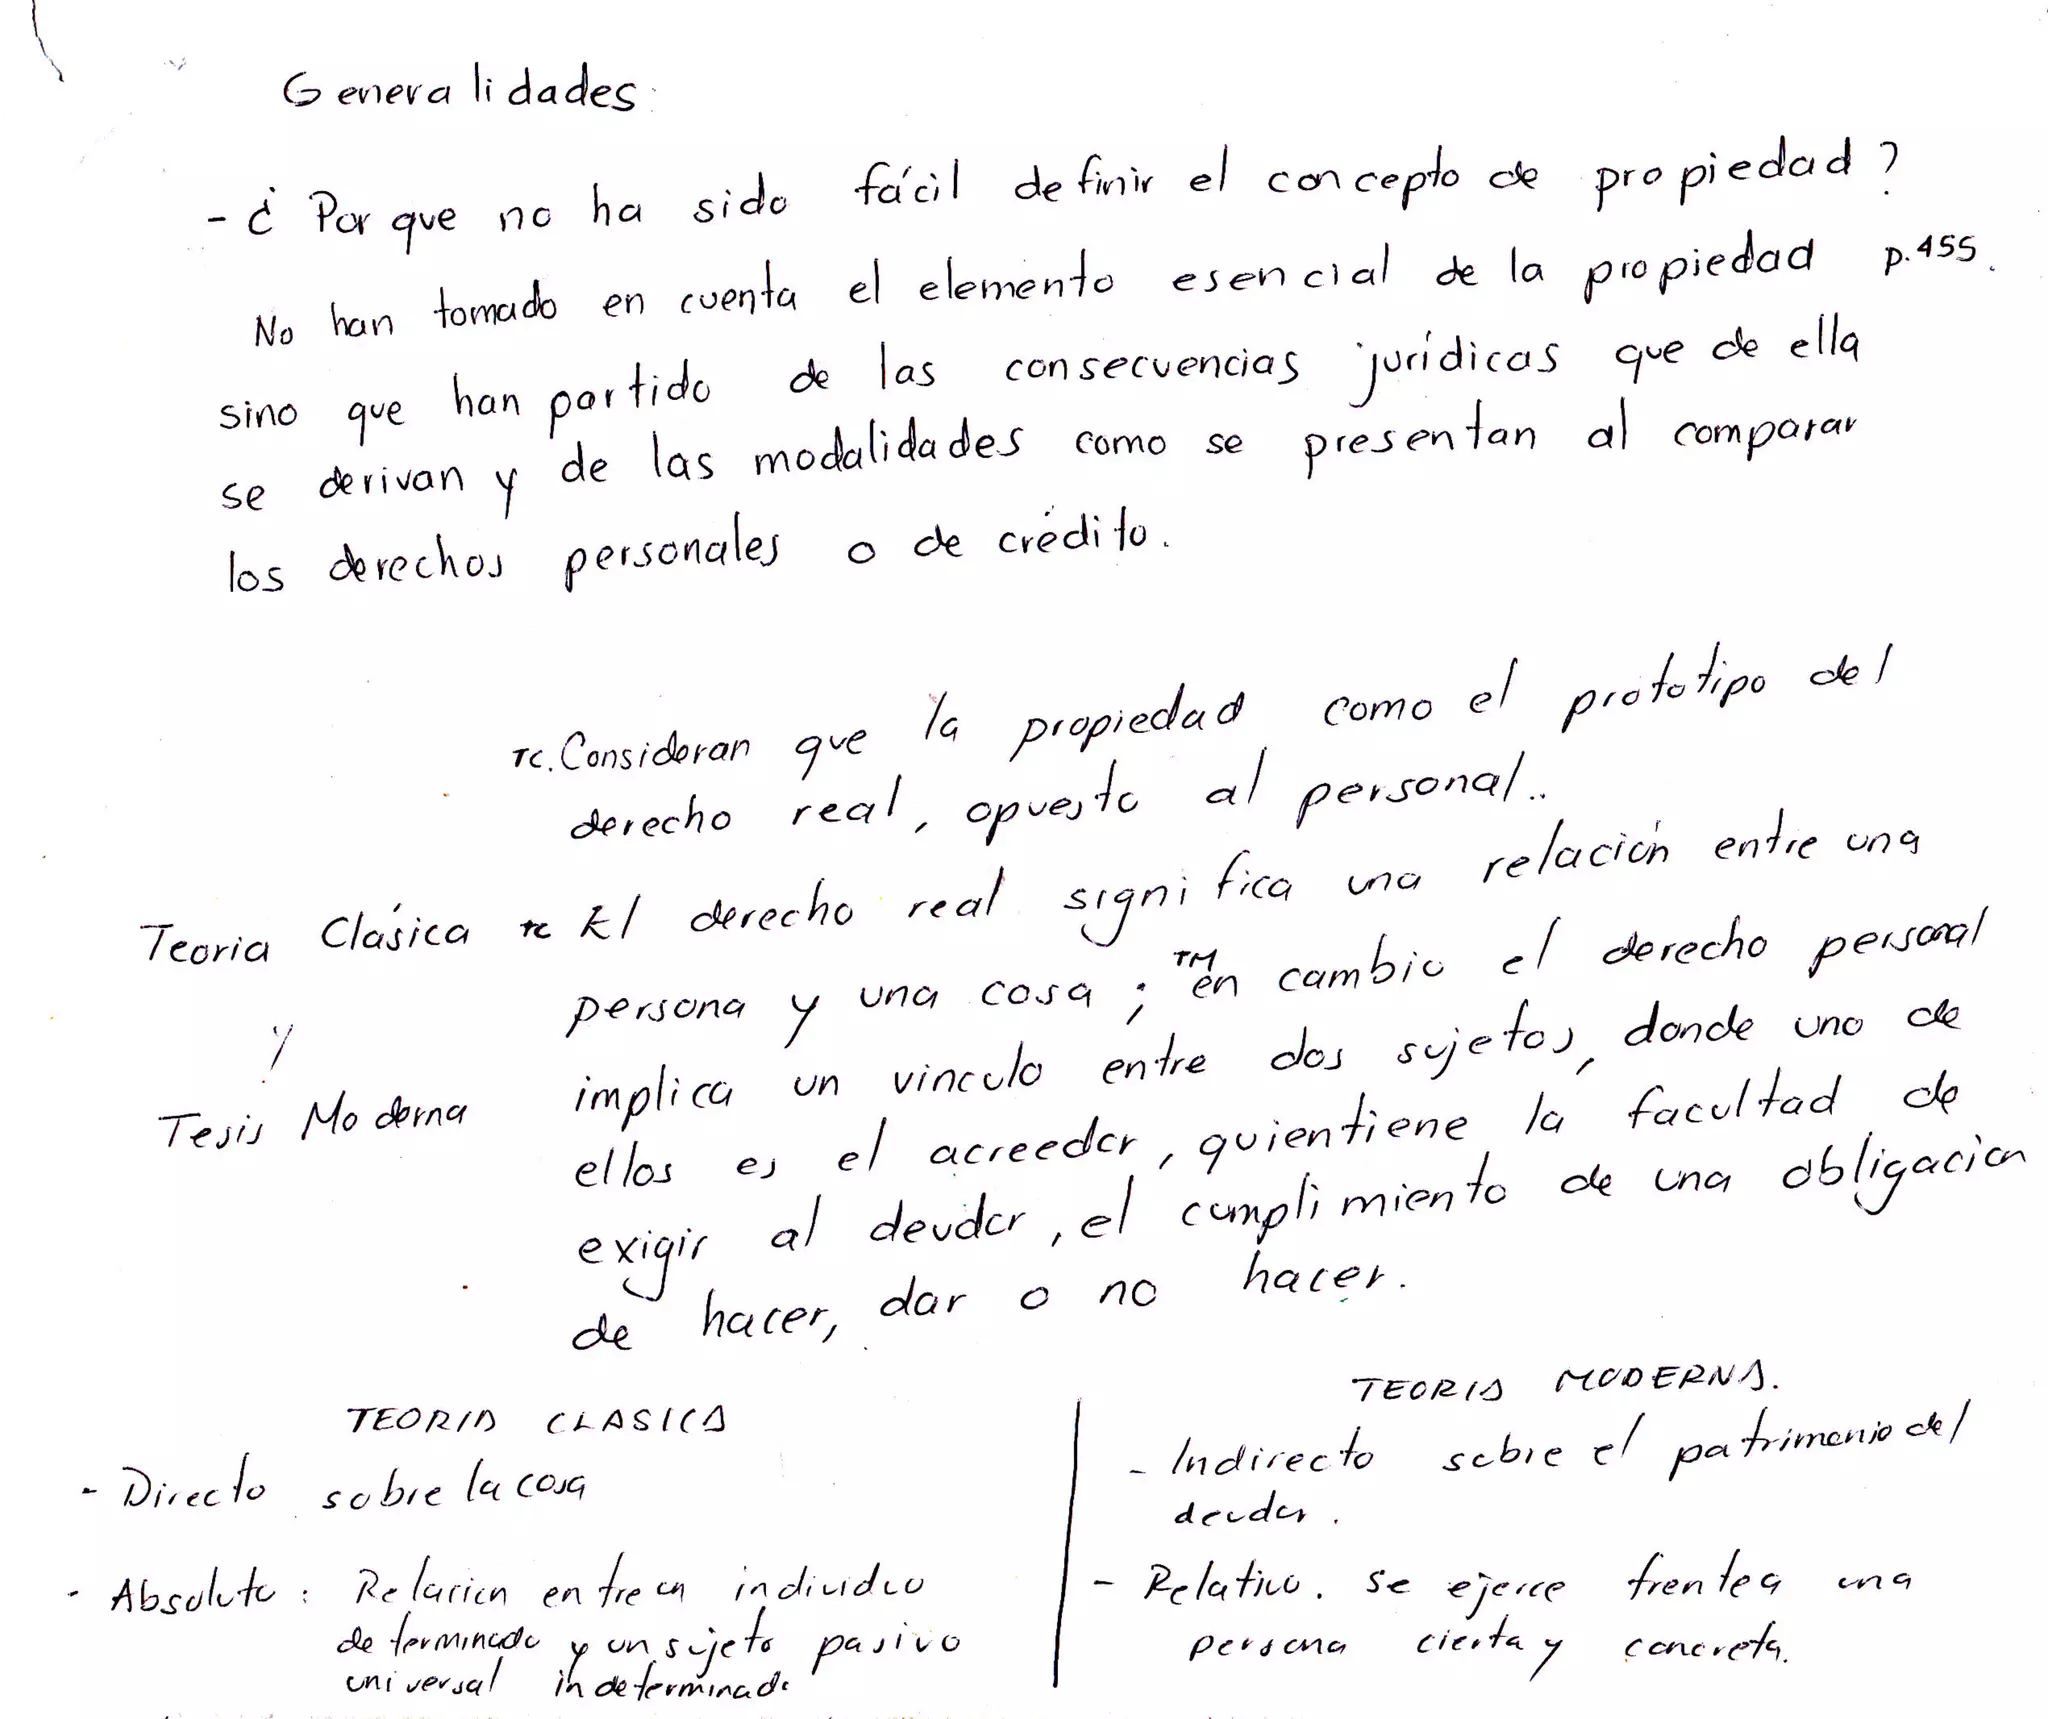 Generalidades:
- ¿Por que no ha sido fácil definir el concepto de propiedad?
No han tomado en cuenta el elemento esencial de la propiedad p.455.
sino que han partido de las consecuencias jurídicas que de ella
se derivan y de las modalidades como se presentan al comparar
los derechos personales o de crédito.
TC. Consideran que la propiedad como el prototipo del
derecho real, opuesto al personal..
Teoria Clásica TC El derecho real significa una relación entre una
persona y una cosa; TM en cambio el derecho personal
y
implica un vinculo entre dos sujetos, donde uno de
Tesis Moderna
ellos es el acreedor, quien tiene la facultad de
exigir al deudor, el cumplimiento de una obligacion
de hacer, dar o no hacer.
TEORIA CLASICA
- Directo sobre la cosa
- Absoluto: Relacion entre un individuo
determinado y un sujeto pasivo
universal indeterminado
TEORIA MODERNA.
- Indirecto sobre el patrimonio del
deudor.
- Relativo. se ejerce frente a una
persona cierta y concreta.